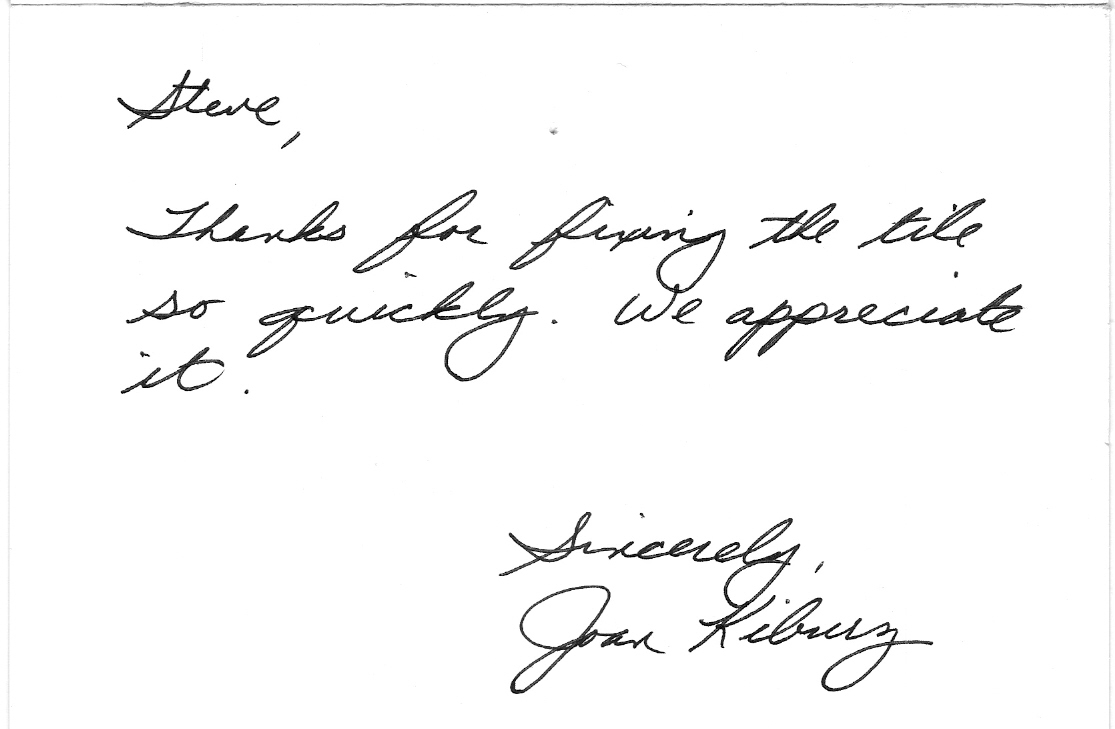 Steve,
Thanks for fixing the tile
so quickly. We appreciate
it.
Sincerely,
Joan Kiburz